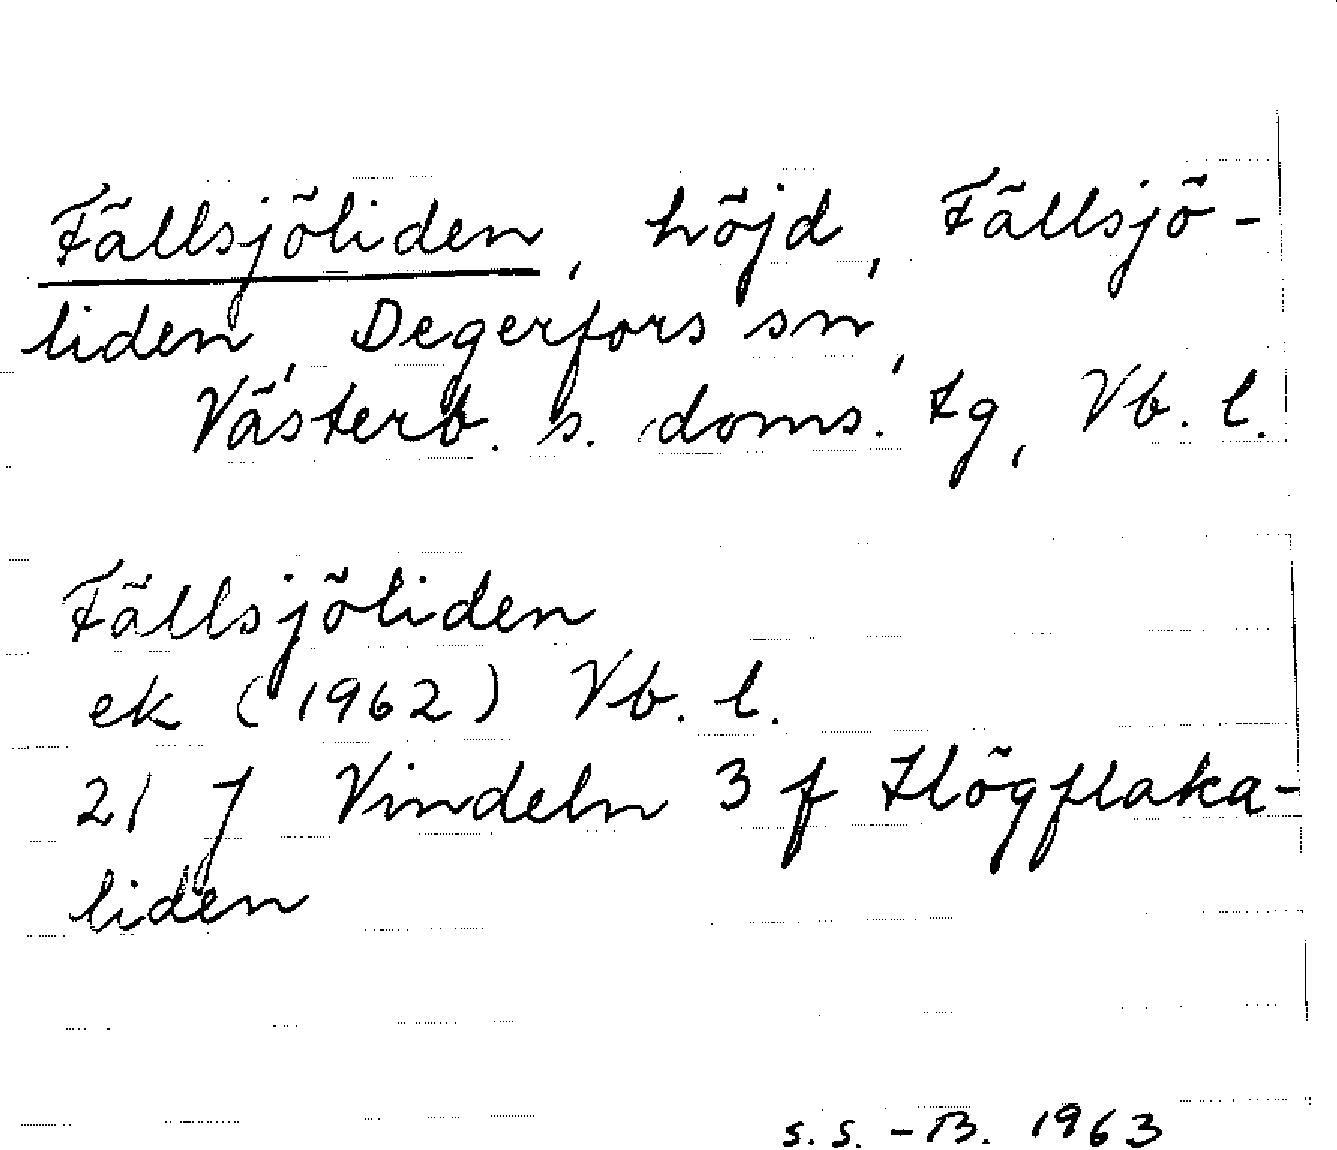 Fällsjöliden, höjd, Fällsjö-
liden, Degerfors sn,
Västerb. s. doms. tg, Vb. l.
Fällsjöliden
ek (1962) Vb. l.
21 J Vindeln 3 f Högflaka-
liden
S. S. - B. 1963